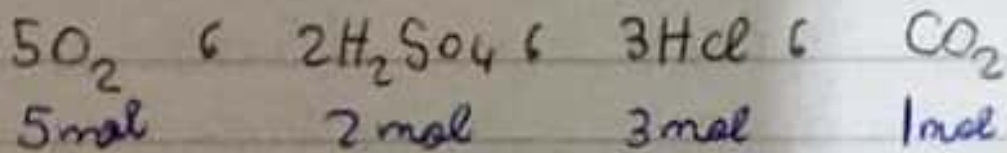 5O₂ 6 2H₂SO₄ 6 3HCl 6 CO₂
5mol 2mol 3mol 1mol